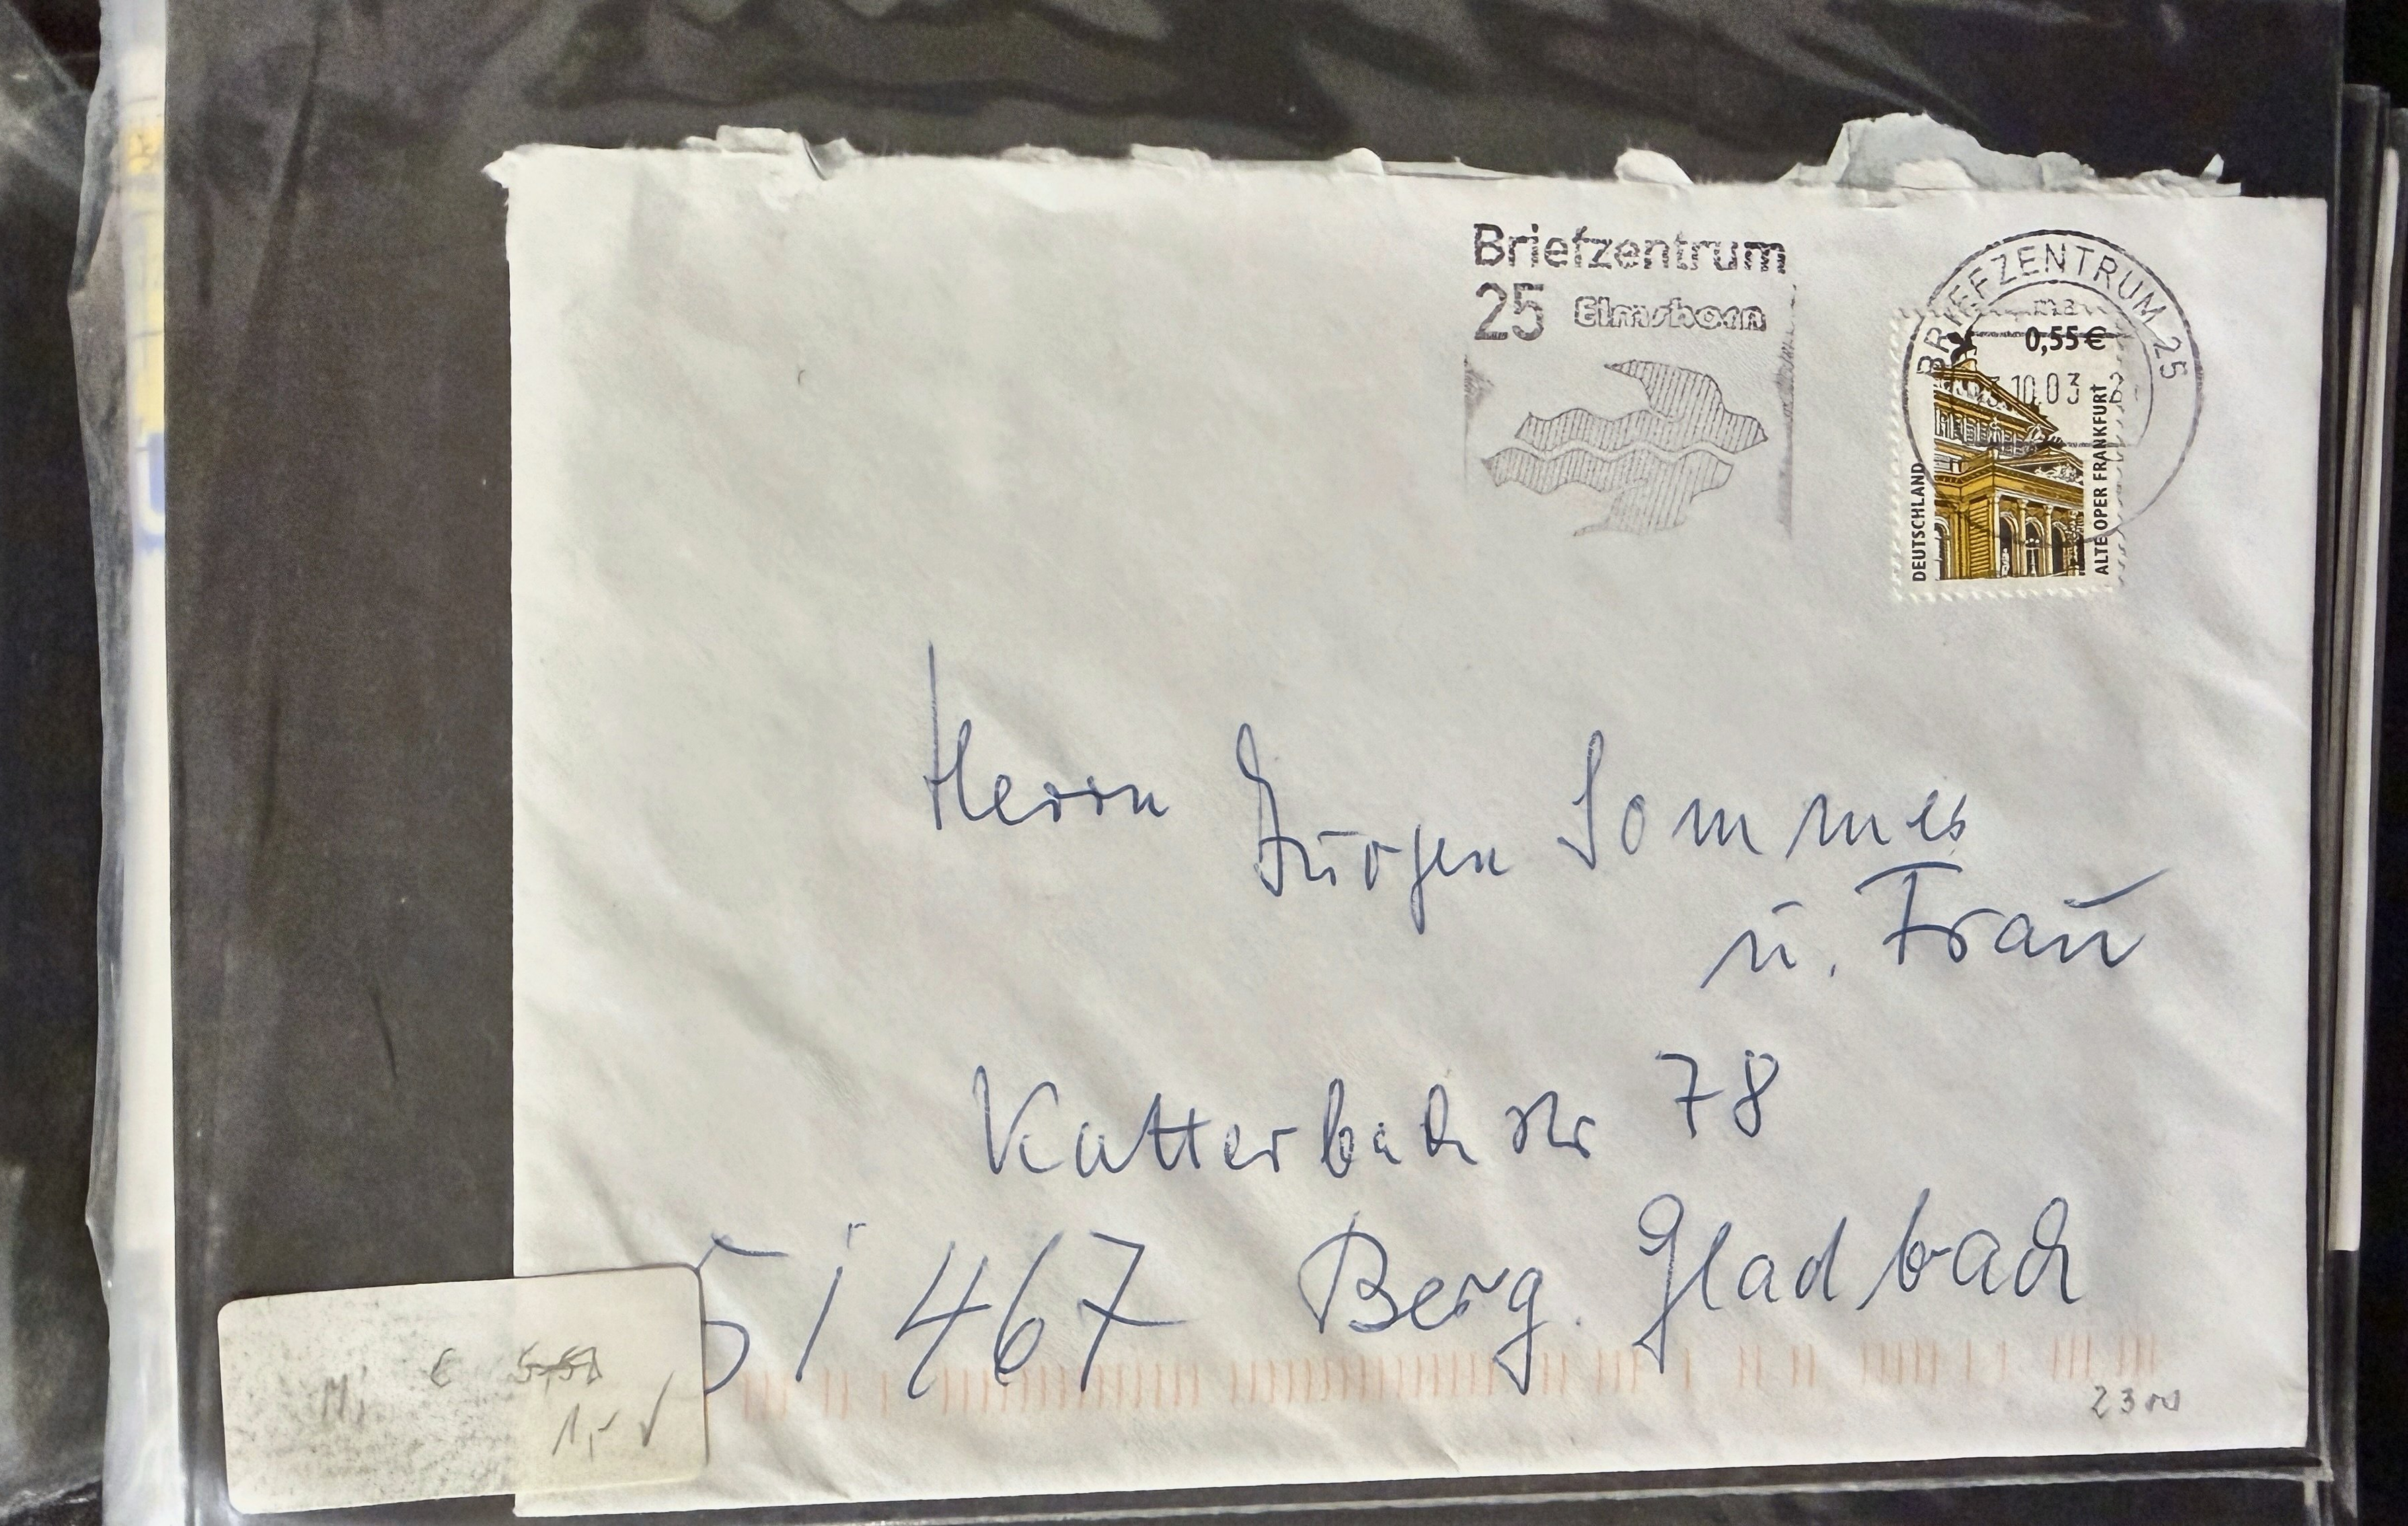 Briefzentrum
25 Elmshorn
BRIEFZENTRUM 25
ma
0,55 €
10.03
DEUTSCHLAND
ALTE OPER FRANKFURT
Herrn Jürgen Sommer
u. Frau
Katterbachstr 78
51467 Berg. Gladbach
€
1,-